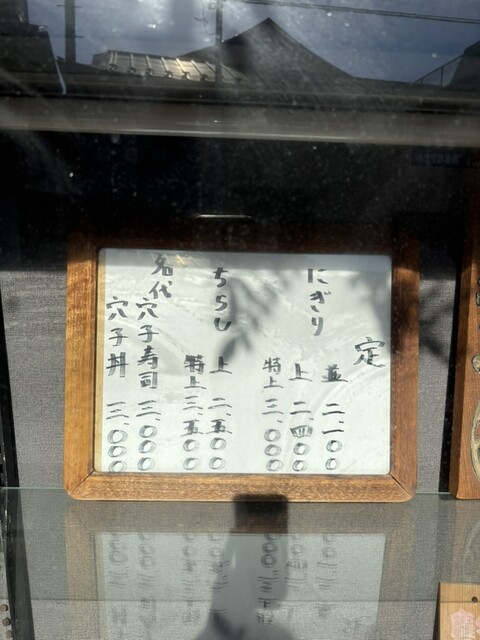 定
にぎり
並 二、一〇〇
上 二、四〇〇
特上 三、〇〇〇
ちらし
上 二、五〇〇
特上 三、五〇〇
名代
穴子寿司 三、〇〇〇
穴子丼 三、〇〇〇